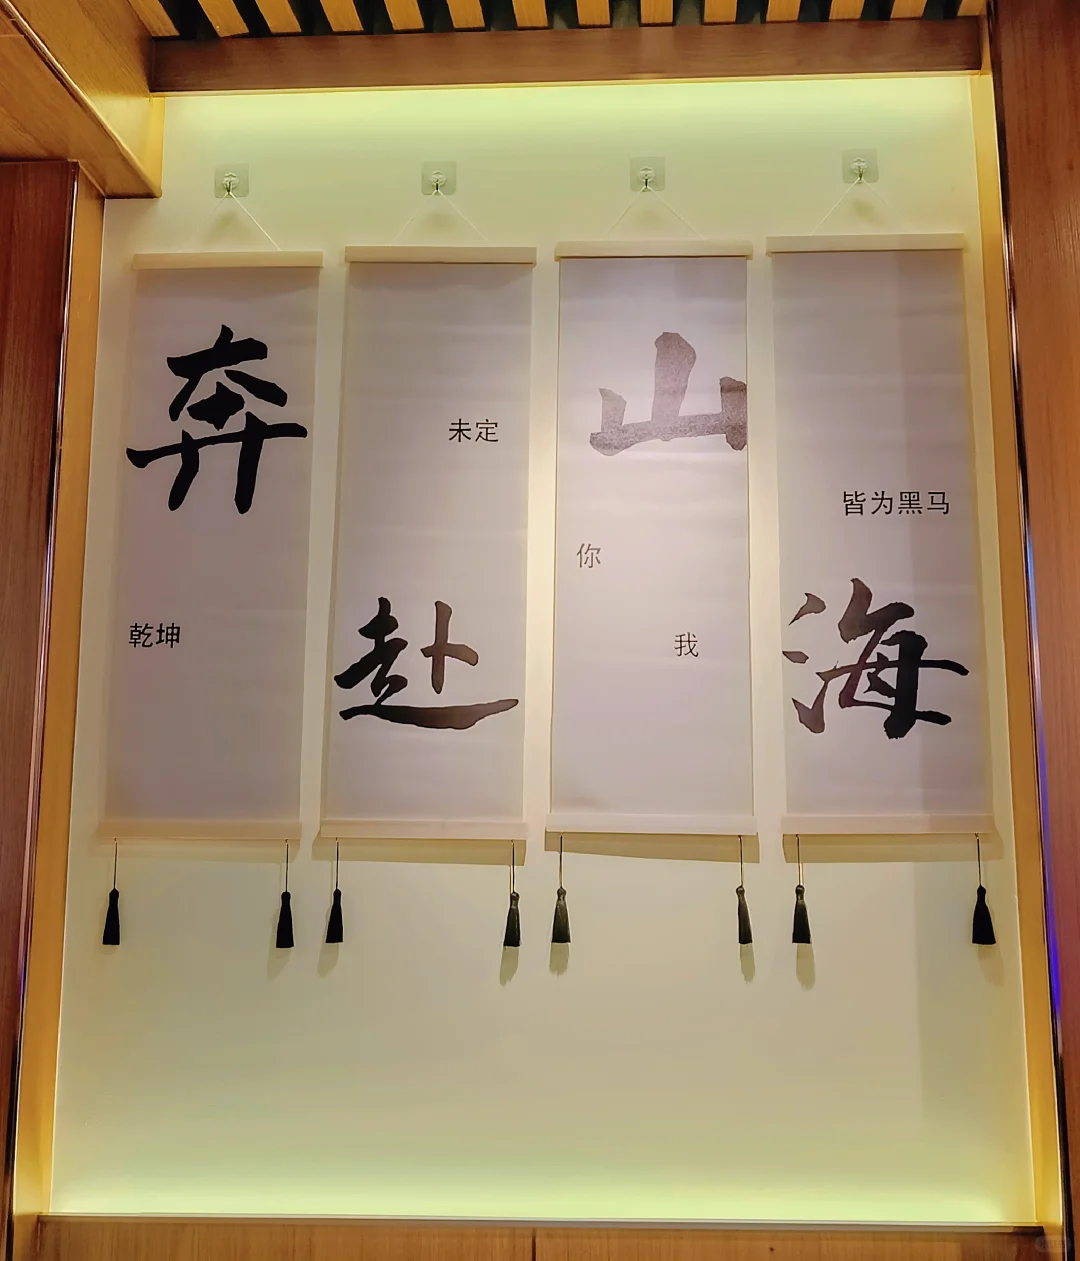 奔
乾坤
未定
赴
山
你
我
皆为黑马
海